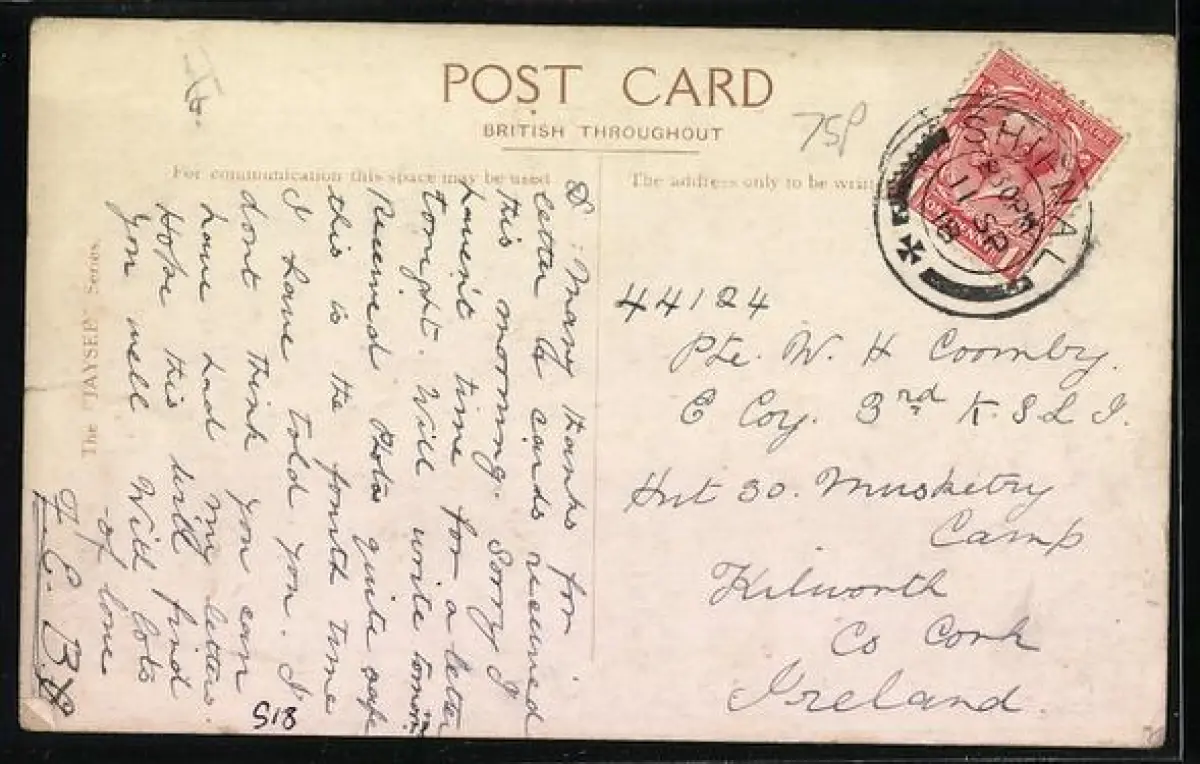 POST CARD
BRITISH THROUGHOUT
75P
For communication this space may be used
The address only to be
SHIFNAL
8 10 PM
11 SP
18
D. Many thanks for
letter & cards received
this morning. Sorry I
havent time for a letter
tonight. Will write
Received Photo quite safe
this is the fourth time
I have told you. I
dont think you can
have had my letters.
Hope this will find
you well With lots
of love
F. E. B.
44124
Pte. W. H Coomby.
E Coy. 3rd K.S.L.I.
Hut 30. Musketry
Camp
Kilworth
Co Cork
Ireland.
The "JAYSEPY" Series.
S18